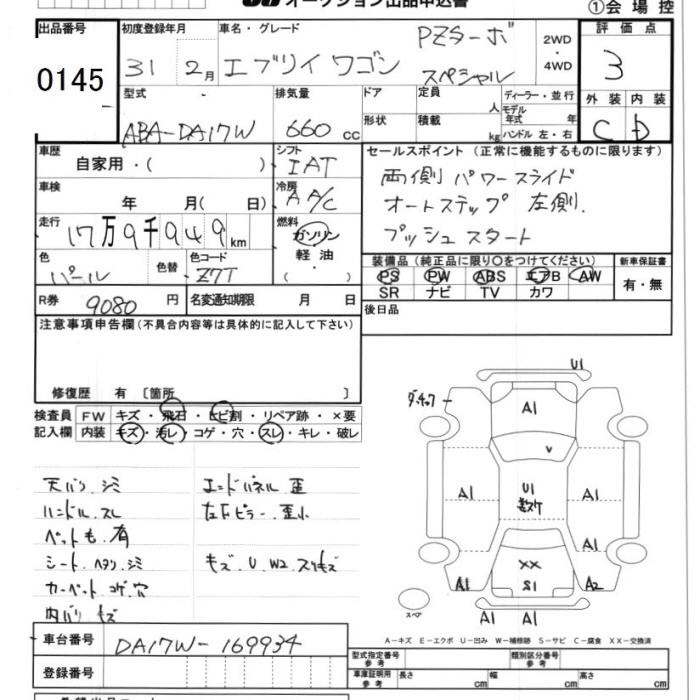 オークション出品申込書
①会場控
出品番号
0145
初度登録年月
31 2月
車名・グレード
エブリイ ワゴン
PZターボ
スペシャル
2WD
・
4WD
評価点
3
外装 内装
C D
型式
ABA-DA17W
排気量
660 cc
ドア
形状
定員 人
積載 kg
ディーラー・並行
モデル
年式 年
ハンドル 左・右
車歴
自家用・( )
シフト
IAT
車検
年 月( 日)
冷房
A A/C
走行
17万9千949km
燃料
ガソリン
軽油
( )
色
パール
色替
色コード
Z7T
R券 9080 円
名変通知期限 月 日
セールスポイント(正常に機能するものに限ります)
両側 パワースライド
オートステップ 左側.
プッシュスタート
装備品(純正品に限り○をつけてください)
PS PW ABS エアB AW
SR ナビ TV カワ
新車保証書
有・無
後日品
注意事項申告欄(不具合内容等は具体的に記入して下さい)
修復歴 有 〔箇所 〕
検査員
記入欄
FW キズ・飛石・ヒビ割・リペア跡・×要
内装 キズ・汚レ・コゲ・穴・スレ・キレ・破レ
天バリ.シミ
ハンドル.スレ
ペットも.有
シート.ヘタリ.シミ
カーペット コゲ.穴
内バリ キズ
エンドパネル 歪
左下ピラー.歪小
キズ.U.W2.スリキズ
U1
A1
V
A1
U1
A1
A1
XX
S1
A1
A2
A1 A1
スペア
A-キズ E-エクボ U-凹み W-補修跡 S-サビ C-腐食 XX-交換済
車台番号 DA17W-169934
登録番号
型式指定番号
参考
類別区分番号
参考
車庫証明用
参考
長さ cm 幅 cm 高さ cm